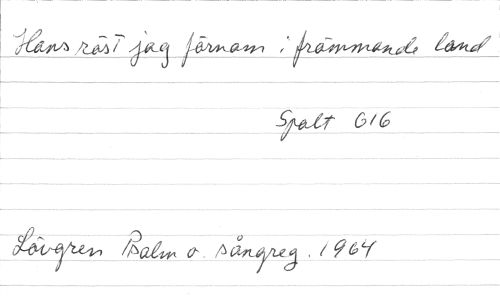 Hans röst jag förnam i främmande land
Spalt 616
Lövgren Psalm o. sångreg. 1964